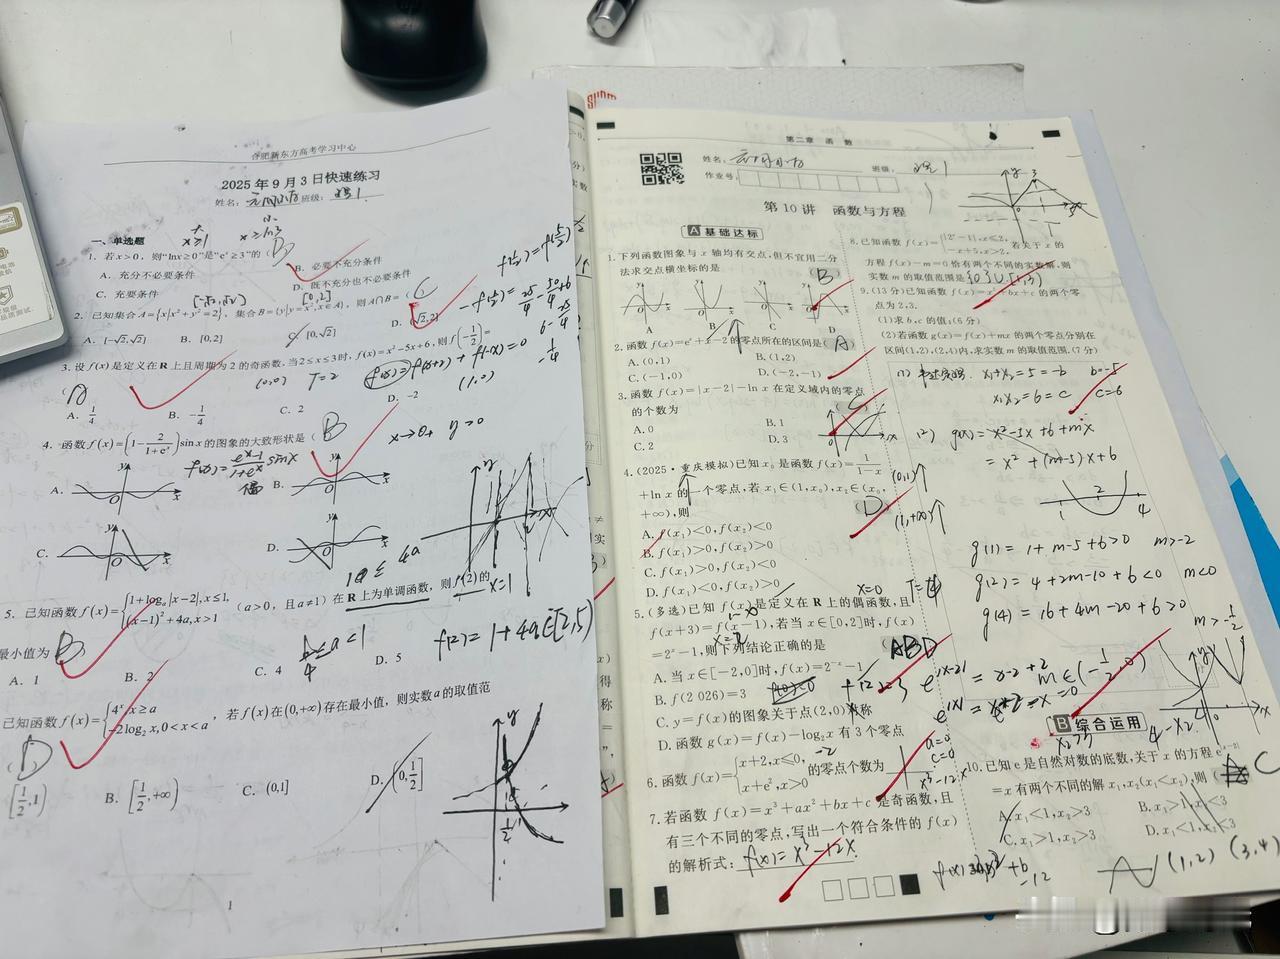 合肥新东方高考学习中心
2025年9月3日快速练习
姓名: 班级: 理1
一、单选题
x≥1
x≥ln3
1. 若x>0,则“lnx≥0”是“eˣ≥3”的( B )
A. 充分不必要条件 B. 必要不充分条件
C. 充要条件 D. 既不充分也不必要条件
[-√2,√2] [0,2]
2. 已知集合A={x|x²+y²=2},集合B={y|y=x²,x∈A},则A∩B=( C
A. [-√2,√2] B. [0,2] C. [0,√2] D. [√2,2]
3. 设f(x)是定义在R上且周期为2的奇函数,当2≤x≤3时,f(x)=x²-5x+6,则f(-1/2)=
(0,0) T=2 f(x+2)+f(-x)=0
(1,0)
A
A. 1/4 B. -1/4 C. 2 D. -2
4. 函数f(x)=(1-2/(1+eˣ))sinx的图象的大致形状是( B
f(x)=(eˣ-1)/(1+eˣ) sinx
偶
x→0+ y>0
A. B.
C. D.
5. 已知函数f(x)={1+logₐ|x-2|,x≤1, (x-1)²+4a,x>1 (a>0,且a≠1)在R上为单调函数,则f(2)的
最小值为( B
x=1
1/4≤a<1
f(2)=1+4a∈[2,5)
A. 1 B. 2 C. 4 D. 5
已知函数f(x)={4ˣ,x≥a -2log₂x,0<x<a,若f(x)在(0,+∞)存在最小值,则实数a的取值范
( D
[1/2,1) B. [1/2,+∞) C. (0,1] D. (0,1/2]
1
第二章 函数
姓名: 班级: 理1
作业号:
第10讲 函数与方程
A 基础达标
1. 下列函数图象与x轴均有交点,但不宜用二分
法求交点横坐标的是 ( B )
A B C D
2. 函数f(x)=eˣ+x-2的零点所在的区间是( A )
A. (0,1) B. (1,2)
C. (-1,0) D. (-2,-1)
3. 函数f(x)=|x-2|-lnx在定义域内的零点
的个数为 ( C )
A. 0 B. 1
C. 2 D. 3
4. (2025·重庆模拟)已知x₀是函数f(x)=1/(1-x)
+lnx的一个零点,若x₁∈(1,x₀),x₂∈(x₀,
+∞),则 ( D )
(0,1)↑
(1,+∞)↑
A. f(x₁)<0,f(x₂)<0
B. f(x₁)>0,f(x₂)>0
C. f(x₁)>0,f(x₂)<0
D. f(x₁)<0,f(x₂)>0
x=0 T=4
5. (多选)已知f(x)是定义在R上的偶函数,且
f(x+3)=f(x-1),若当x∈[0,2]时,f(x)
=2ˣ-1,则下列结论正确的是 ( ABD
A. 当x∈[-2,0]时,f(x)=2⁻ˣ-1
B. f(2 026)=3
C. y=f(x)的图象关于点(2,0)对称
D. 函数g(x)=f(x)-log₂x有3个零点
6. 函数f(x)={x+2,x≤0, x+eˣ,x>0的零点个数为
a=0
c=0
x³-12x
7. 若函数f(x)=x³+ax²+bx+c是奇函数,且
有三个不同的零点,写出一个符合条件的f(x)
的解析式: f(x)=x³-12x
8. 已知函数f(x)={|2ˣ-1|,x≤2, -x+5,x>2,若关于x的
方程f(x)-m=0恰有两个不同的实数解,则
实数m的取值范围是{0}∪[1,3)
9. (13分)已知函数f(x)=x²+bx+c的两个零
点为2,3.
(1)求b,c的值;(6分)
(2)若函数g(x)=f(x)+mx的两个零点分别在
区间(1,2),(2,4)内,求实数m的取值范围.(7分)
(1) 韦达定理 x₁+x₂=5=-b b=-5
x₁x₂=6=c c=6
(2) g(x)=x²-5x+6+mx
=x²+(m-5)x+6
1 2 4
g(1)=1+m-5+6>0 m>-2
g(2)=4+2m-10+6<0 m<0
g(4)=16+4m-20+6>0
m>-1/2
m∈(-1/2,0)
B 综合运用
10. 已知e是自然对数的底数,关于x的方程e^|x-2|
=x有两个不同的解x₁,x₂(x₁<x₂),则( C
A. x₁<1,x₂>3 B. x₁>1,x₂<3
C. x₁>1,x₂>3 D. x₁<1,x₂<3
(1,2) (3,4)